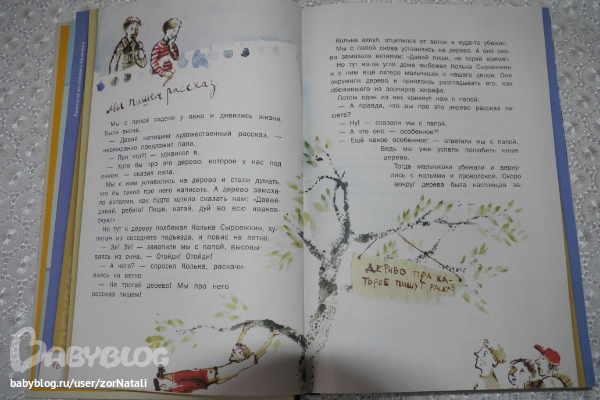 Мы пишем рассказ
Мы с папой сидели у окна и дивились жизни.
Была весна.
— Давай напишем художественный рассказ, —
неожиданно предложил папа.
— Про что?! — удивился я.
— Хотя бы про это дерево, которое у нас под
окном, — сказал папа.
Мы с ним уставились на дерево и стали думать,
что бы такое про него написать. А дерево замаха-
ло ветвями, как будто хотело сказать нам: «Давай-
давай, ребята! Пиши, катай, дуй во всю иванов-
скую!»
Но тут к дереву подбежал Колька Сыровжкин, ху-
лиган из соседнего подъезда, и повис на ветке.
— Эй! Эй! — завопили мы с папой, высовы-
ваясь из окна. — Отойди! Отойди!
— А чего? — спросил Колька, раскачи-
ваясь на ветке.
— Не трогай дерево! Мы про него
рассказ пишем!
Колька ахнул, отцепился от ветки и куда-то убежал.
Мы с папой снова уставились на дерево. А оно сно-
ва замахало ветвями: «Давай пиши, не теряй время!»
Но тут из-за угла дома выбежал Колька Сыровжкин
и с ним ещё пятеро мальчишек с нашего двора. Они
окружили дерево и принялись разглядывать его, как
сбежавшего из зоопарка жирафа.
Потом один из них крикнул нам с папой:
— А правда, что вы про это дерево рассказ пи-
шете?
— Ну! — сказали мы с папой.
— А что оно — особенное?!
— Ещё какое особенное! — ответили мы с папой.
Ведь мы уже успели полюбить наше
дерево.
Тогда мальчишки убежали и верну-
лись с кольями и проволокой. Скоро
вокруг дерева была настоящая за-
ДЕРИВО ПРА КА-
ТОРОЕ ПИШУТ РАСКАЗ
BABYBLOG
babyblog.ru/user/zorNatali